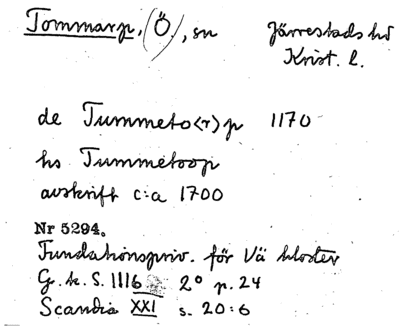 Tommarp, (Ö.), sn Järrestads hd
Krist. l.
de Tummeto<r>p 1170
hs Tummetoop
avskrift c:a 1700
Nr 5294.
Fundationspriv. för Vä kloster
G. k. S. 1116 2º p. 24
Scandia XXI s. 20:6